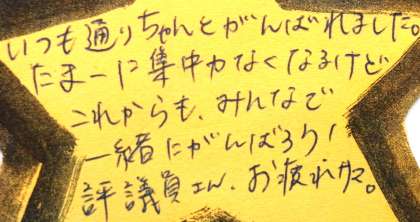 いつも通りちゃんとがんばれました。
たまーに集中力なくなるけど
これからも、みんなで
一緒にがんばろう!
評議員さん、お疲れサマ。